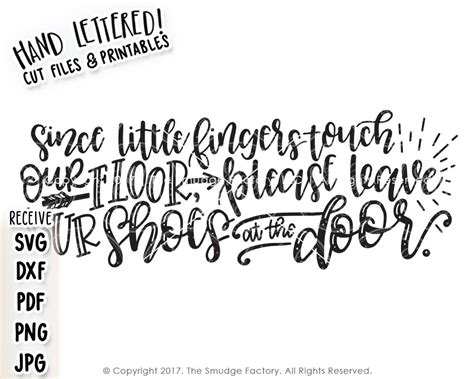 HAND LETTERED!
CUT FILES & PRINTABLES
Since little fingers touch
OUR FLOOR, please leave
UR SHOES at the door.
RECEIVE
SVG
DXF
PDF
PNG
JPG
© Copyright 2017. The Smudge Factory. All Rights Reserved.